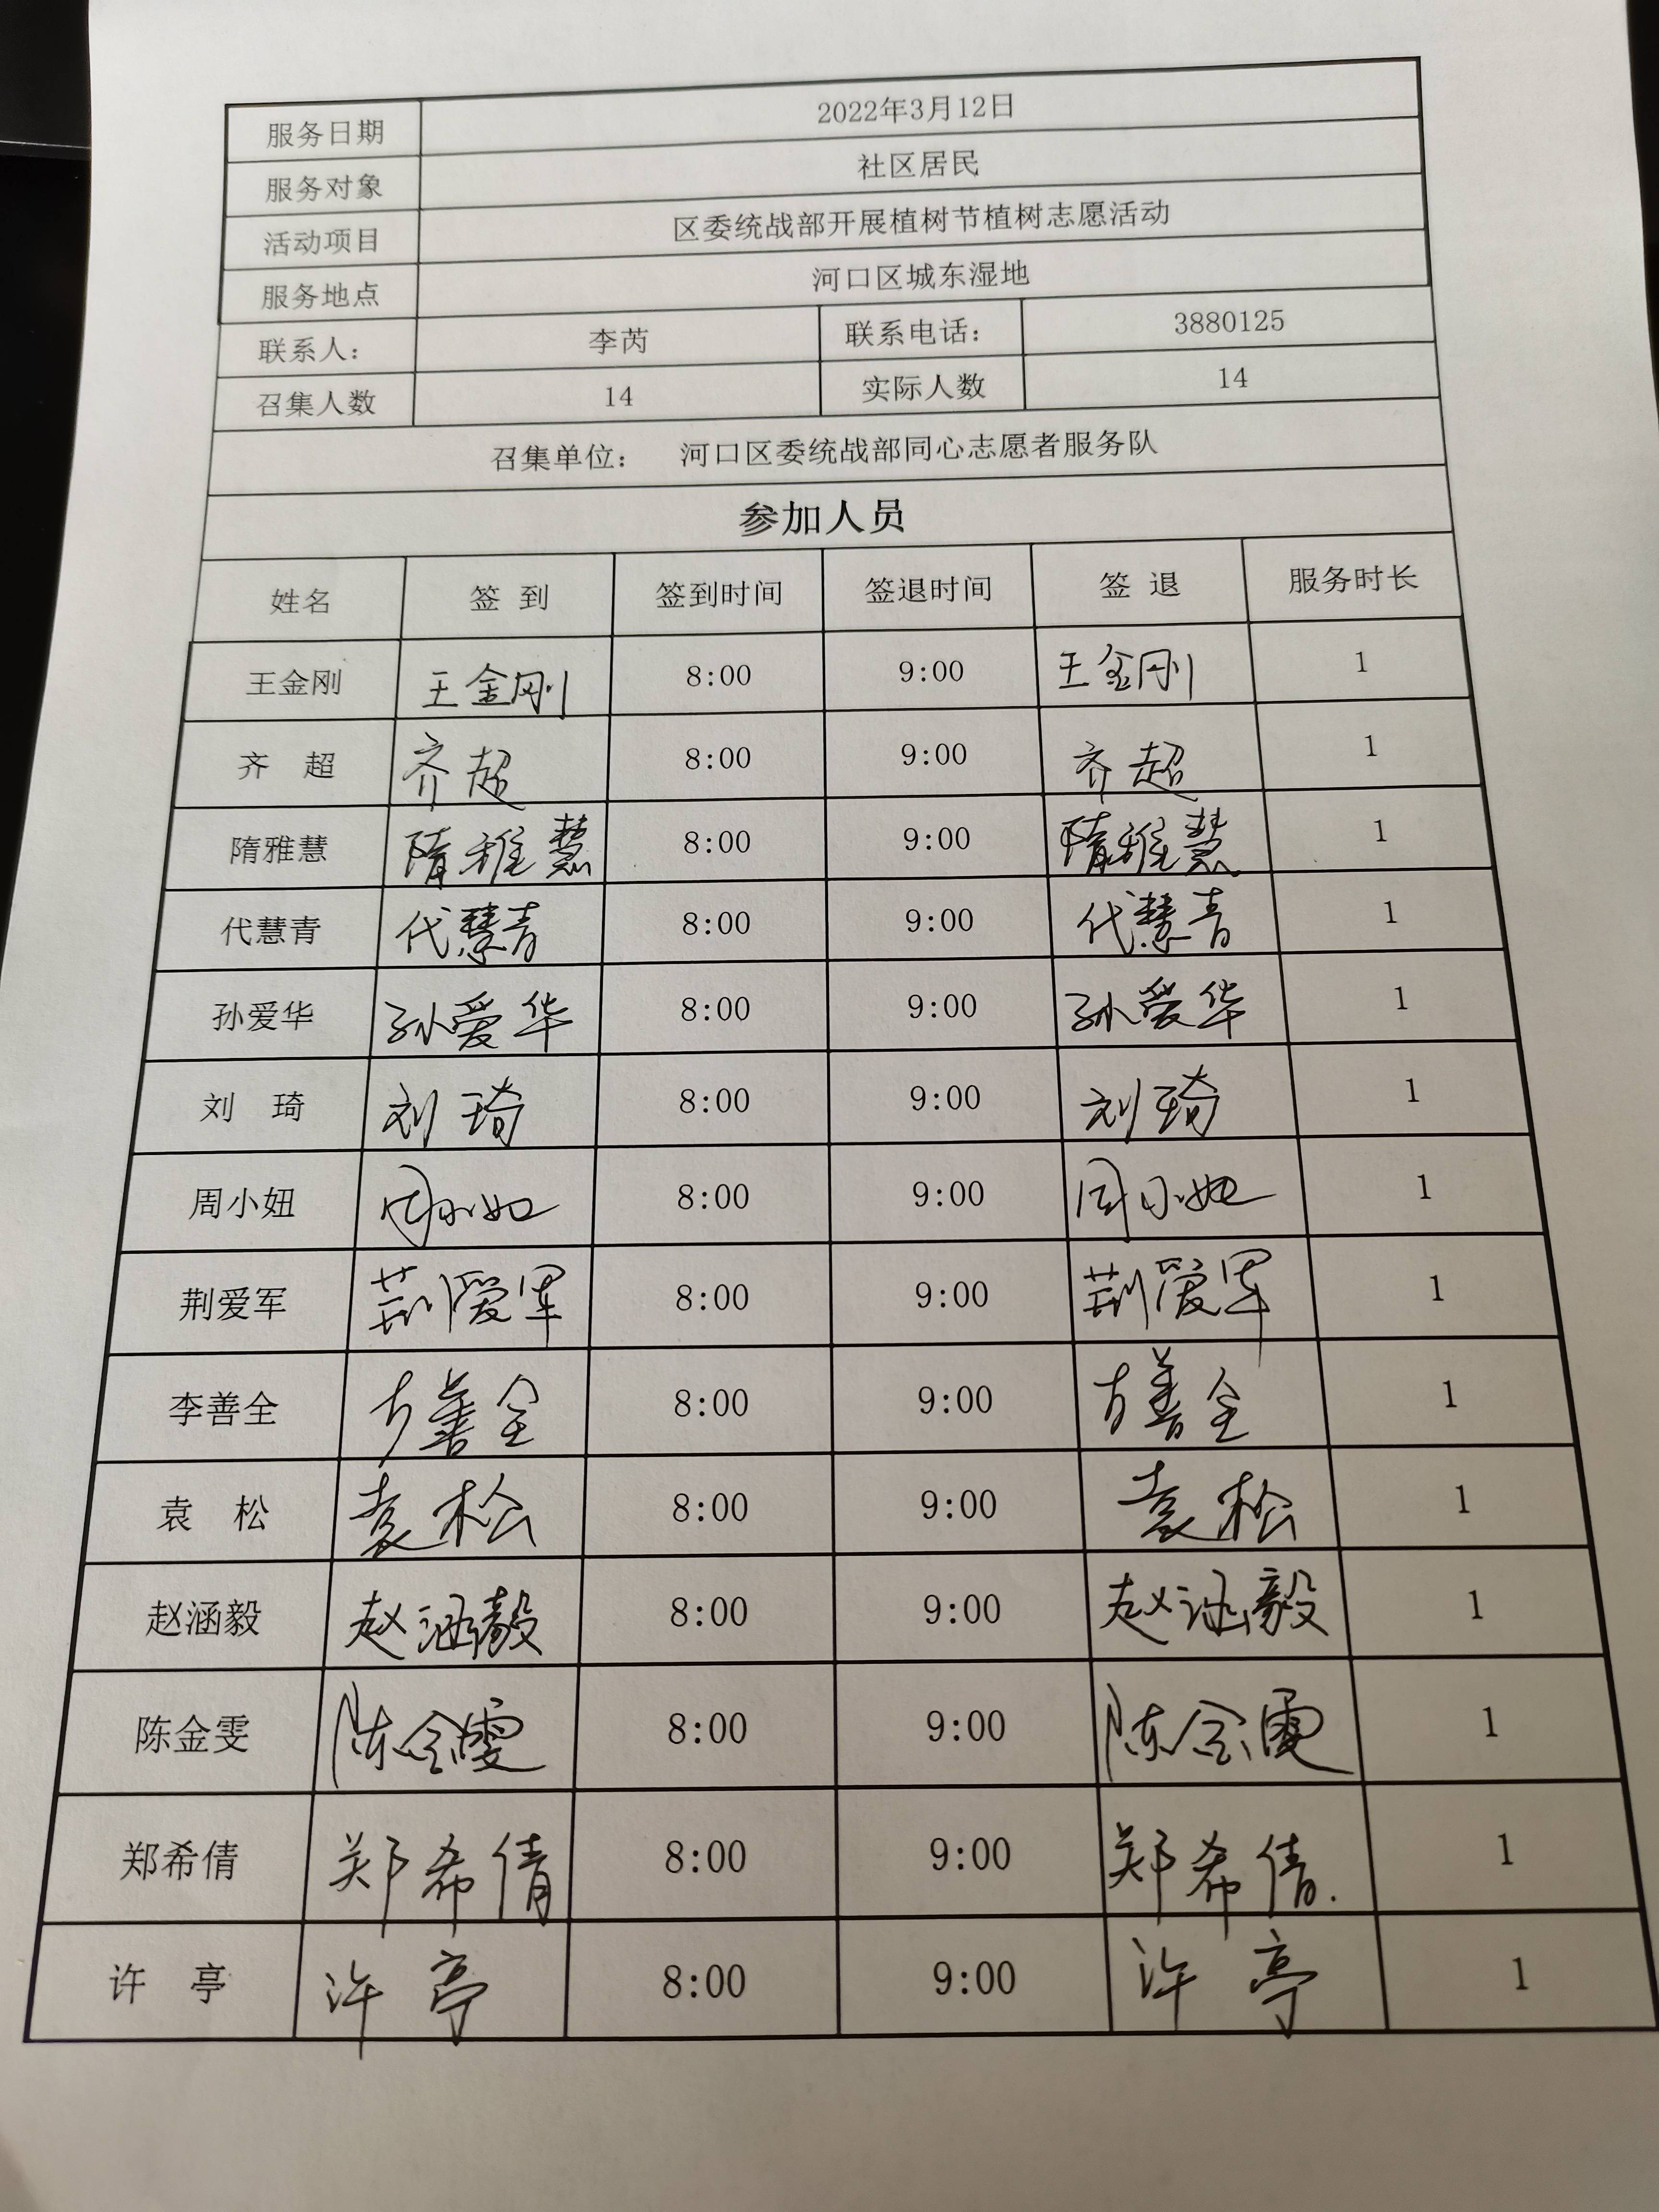 服务日期 2022年3月12日
服务对象 社区居民
活动项目 区委统战部开展植树节植树志愿活动
服务地点 河口区城东湿地
联系人： 李芮 联系电话： 3880125
召集人数 14 实际人数 14
召集单位： 河口区委统战部同心志愿者服务队
参加人员
姓名 签 到 签到时间 签退时间 签 退 服务时长
王金刚 王金刚 8:00 9:00 王金刚 1
齐 超 齐超 8:00 9:00 齐超 1
隋雅慧 隋雅慧 8:00 9:00 隋雅慧 1
代慧青 代慧青 8:00 9:00 代慧青 1
孙爱华 孙爱华 8:00 9:00 孙爱华 1
刘 琦 刘琦 8:00 9:00 刘琦 1
周小妞 周小妞 8:00 9:00 周小妞 1
荆爱军 荆爱军 8:00 9:00 荆爱军 1
李善全 李善全 8:00 9:00 李善全 1
袁 松 袁松 8:00 9:00 袁松 1
赵涵毅 赵涵毅 8:00 9:00 赵涵毅 1
陈金雯 陈金雯 8:00 9:00 陈金雯 1
郑希倩 郑希倩 8:00 9:00 郑希倩. 1
许 亭 许亭 8:00 9:00 许亭 1